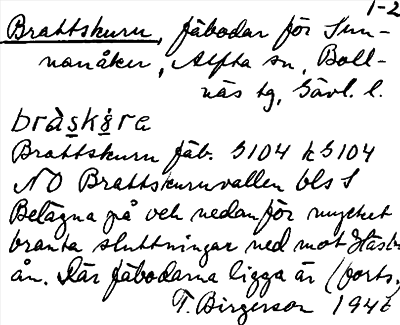 1-2
Brattskurn, fäbodar för Sun-
nanåker, Alfta sn, Boll-
näs tg, Gävl. l.
bràskǝra
Brattskurn fäb. 5104 k 5104
NO Brattskurnvallen bls S
Belägna på och nedanför mycket
branta sluttningar ned mot Häsbo
ån. Där fäbodarna ligga är (forts.
T. Birgerson 1946